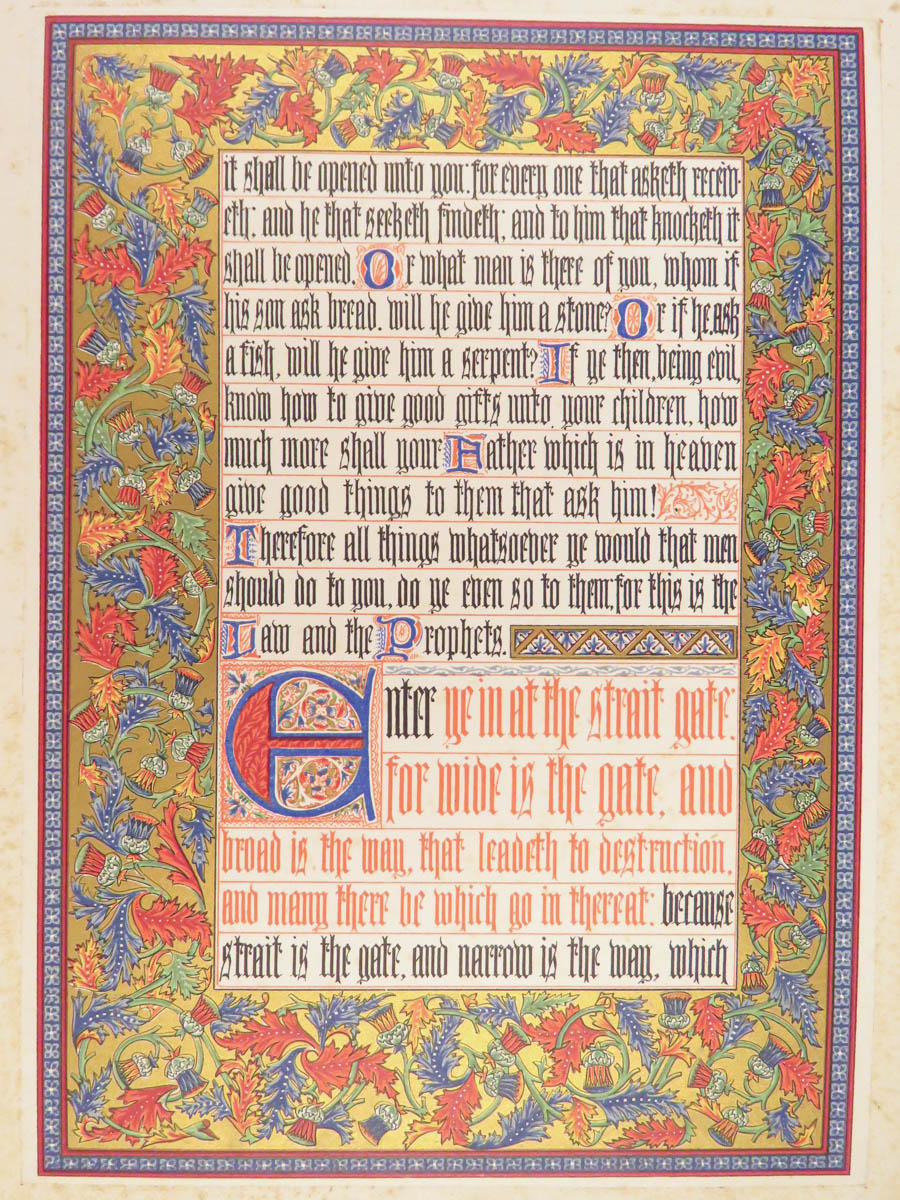 it shall be opened unto you: for every one that asketh receiv-
eth: and he that seeketh findeth: and to him that knocketh it
shall be opened. Or what man is there of you, whom if
his son ask bread. will he give him a stone? Or if he ask
a fish, will he give him a serpent? If ye then, being evil,
know how to give good gifts unto your children, how
much more shall your Father which is in heaven
give good things to them that ask him!
Therefore all things whatsoever ye would that men
should do to you, do ye even so to them, for this is the
Law and the Prophets.
Enter ye in at the strait gate:
for wide is the gate, and
broad is the way, that leadeth to destruction,
and many there be which go in thereat: because
strait is the gate, and narrow is the way, which